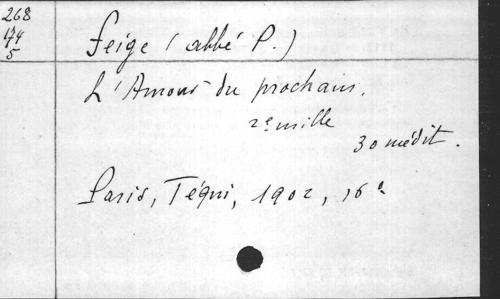 268
474
5
Feige (abbé P.)
L'Amour du prochain.
2e mille
30 médit.
Paris, Téqui, 1902, 16º